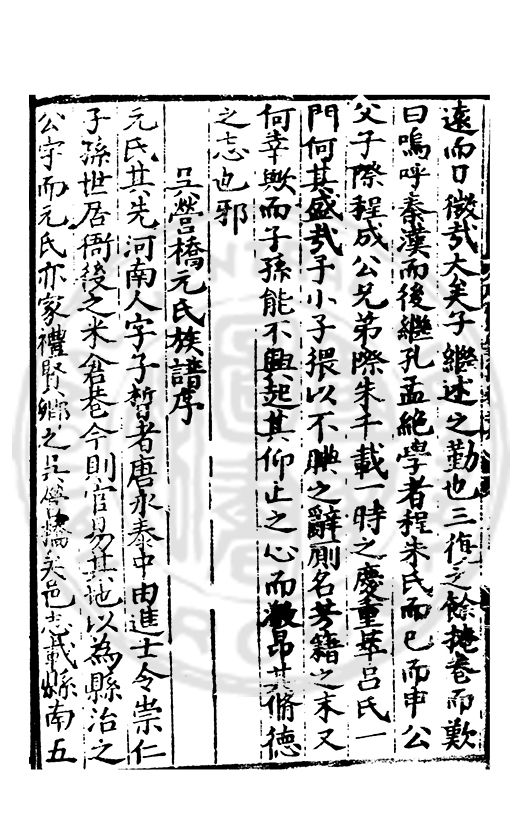 遠而口微哉大矣子繼述之勤也三復之餘掩卷而歎
曰嗚呼秦漢而後繼孔孟絶學者程朱氏而已而申公
父子際程成公兄弟際朱千載一時之慶重萃吕氏一
門何其盛哉子小子猥以不腆之辭厠名芳籍之末又
何幸歟而子孫能不興起其仰止之心而激昂其脩德
之志也邪
吴營橋元氏族譜序
元氏其先河南人字子晳者唐永泰中由進士令崇仁
子孫世居衙後之米倉巷今則官易其地以為縣治之
公宇而元氏亦家禮賢鄉之吴營橋矣邑志載縣南五